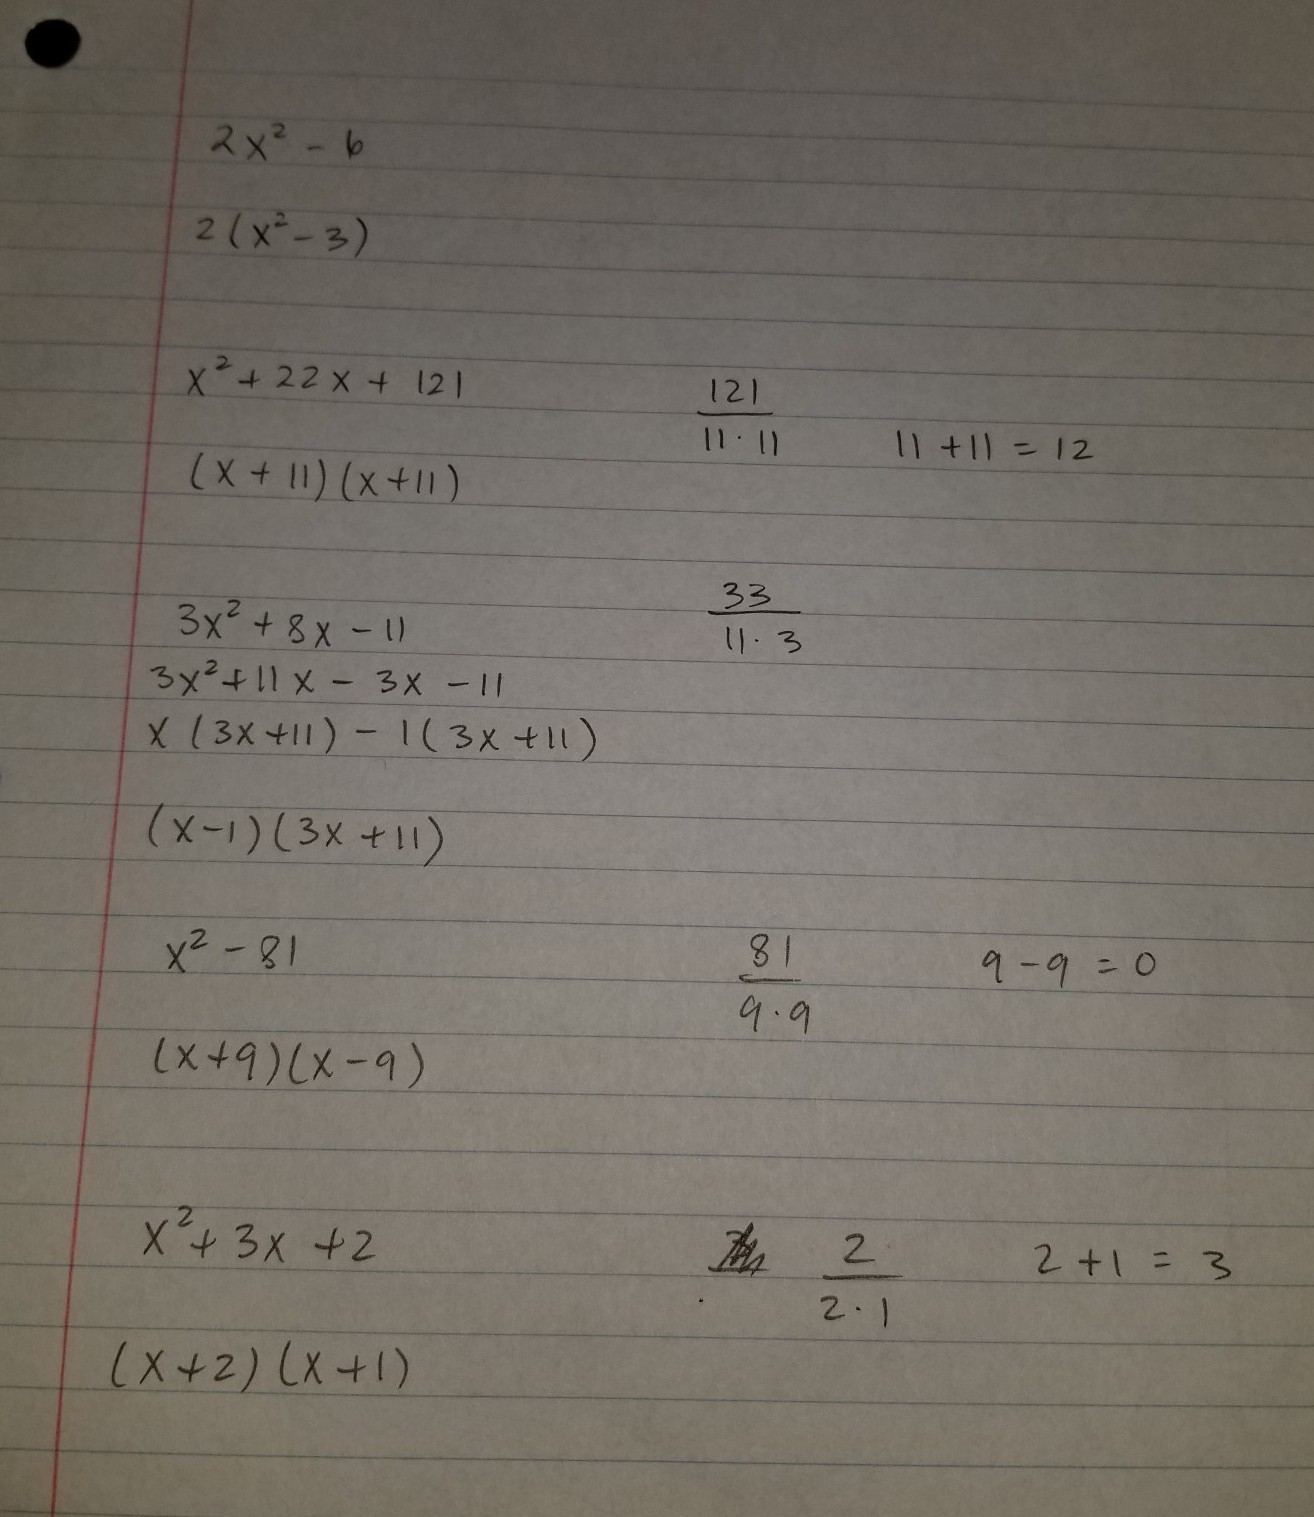 2x² - 6
2(x² - 3)
x² + 22x + 121
121
11 · 11
11 + 11 = 12
(x + 11)(x + 11)
33
11 · 3
3x² + 8x - 11
3x² + 11x - 3x - 11
x(3x + 11) - 1(3x + 11)
(x - 1)(3x + 11)
x² - 81
81
9 · 9
9 - 9 = 0
(x + 9)(x - 9)
x² + 3x + 2
2
2 · 1
2 + 1 = 3
(x + 2)(x + 1)